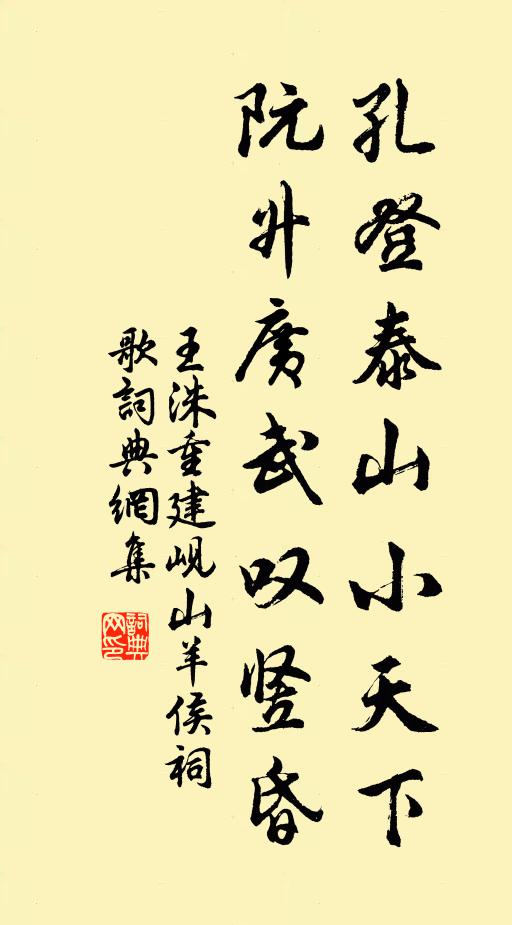 孔登泰山小天下
阮升廣武叹竖昏
王洙重建岘山羊侯祠
歌詞典網集
詞典网印